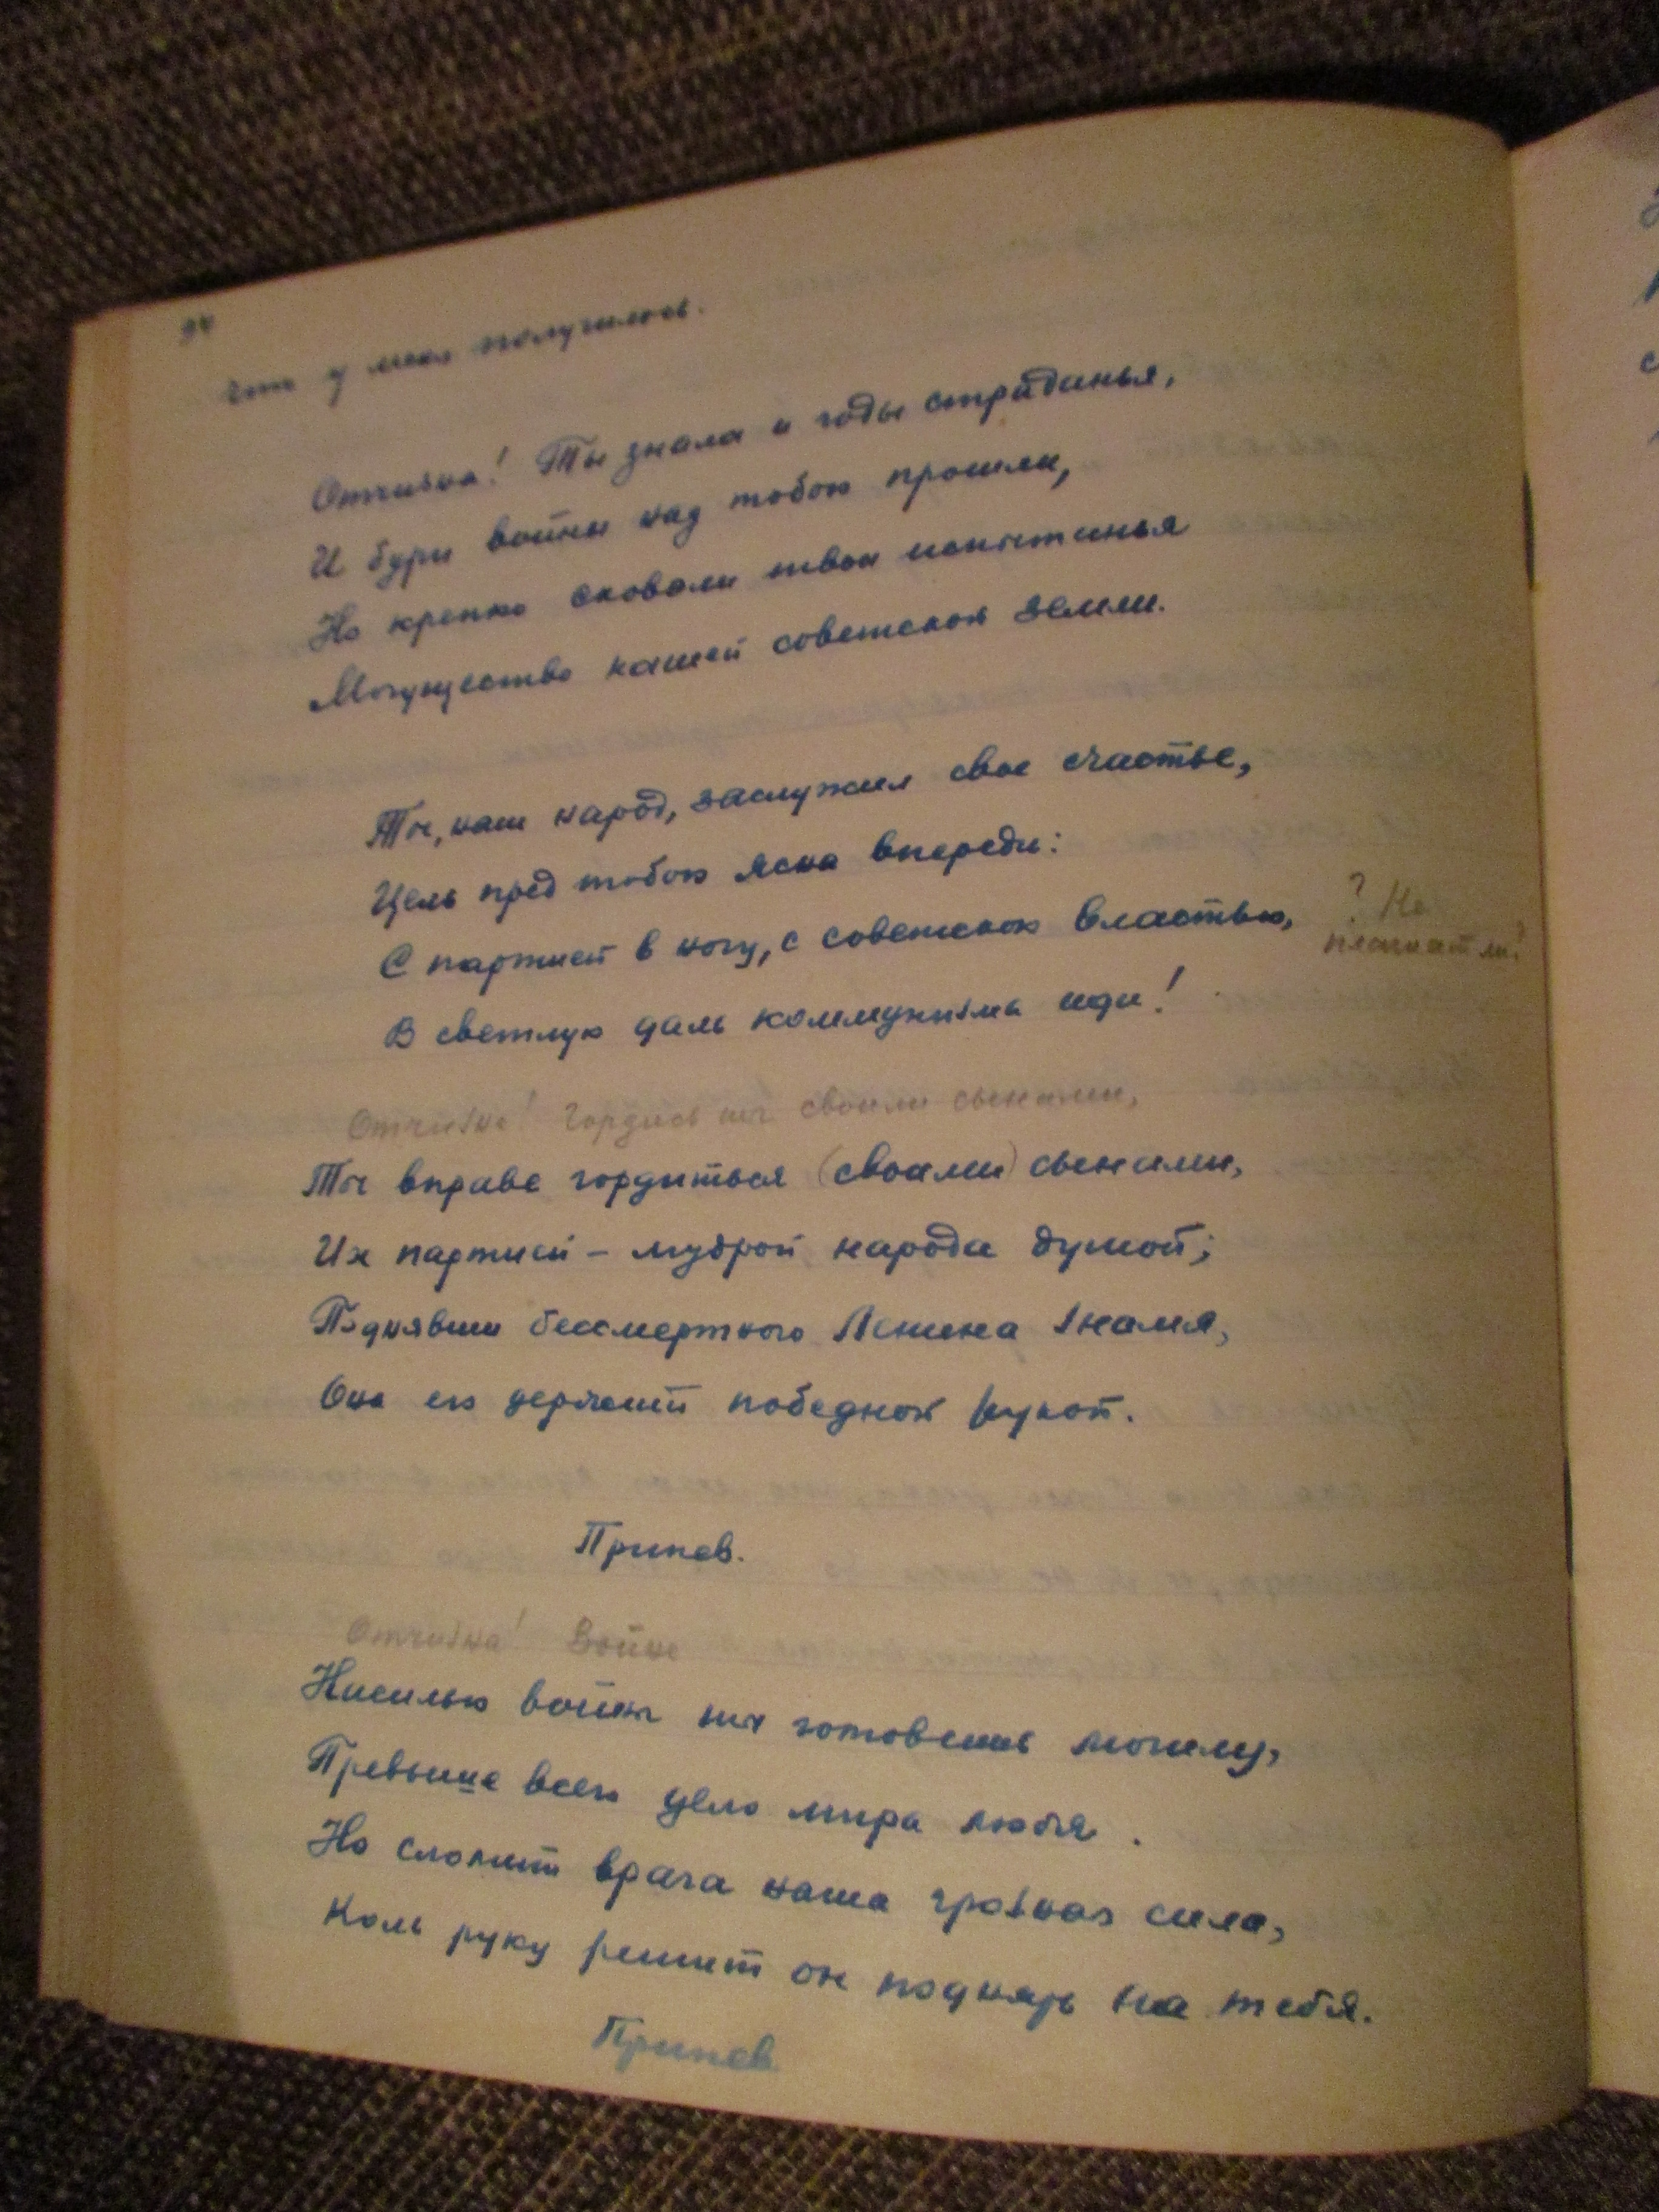 94
что у меня получилось.
Отчизна! Ты знала и годы страданья,
И бури войны над тобою прошли,
Но крепко сковали твои испытанья
Могущество нашей советской земли.
Ты, наш народ, заслужил свое счастье,
Цель пред тобою ясна впереди:
С партией в ногу, с советскою властью,
? Не
плагиат ли?
В светлую даль коммунизма иди!
Отчизна! Гордись ты своими сынами,
Ты вправе гордиться (своими) сынами,
Их партией – мудрой народа думой;
Поднявши бессмертного Ленина знамя,
Она его держит победной рукой.
Припев.
Отчизна! Войне
Насилью войны ты готовишь могилу,
Превыше всего дело мира любя.
Но сломит врага наша грозная сила,
Коль руку решит он поднять на тебя.
Припев